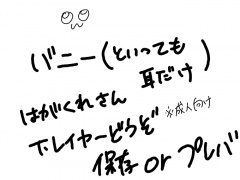 バニー(といっても
耳だけ)
はがくれさん
下レイヤーどうぞ ※成人向け
保存orプレバ